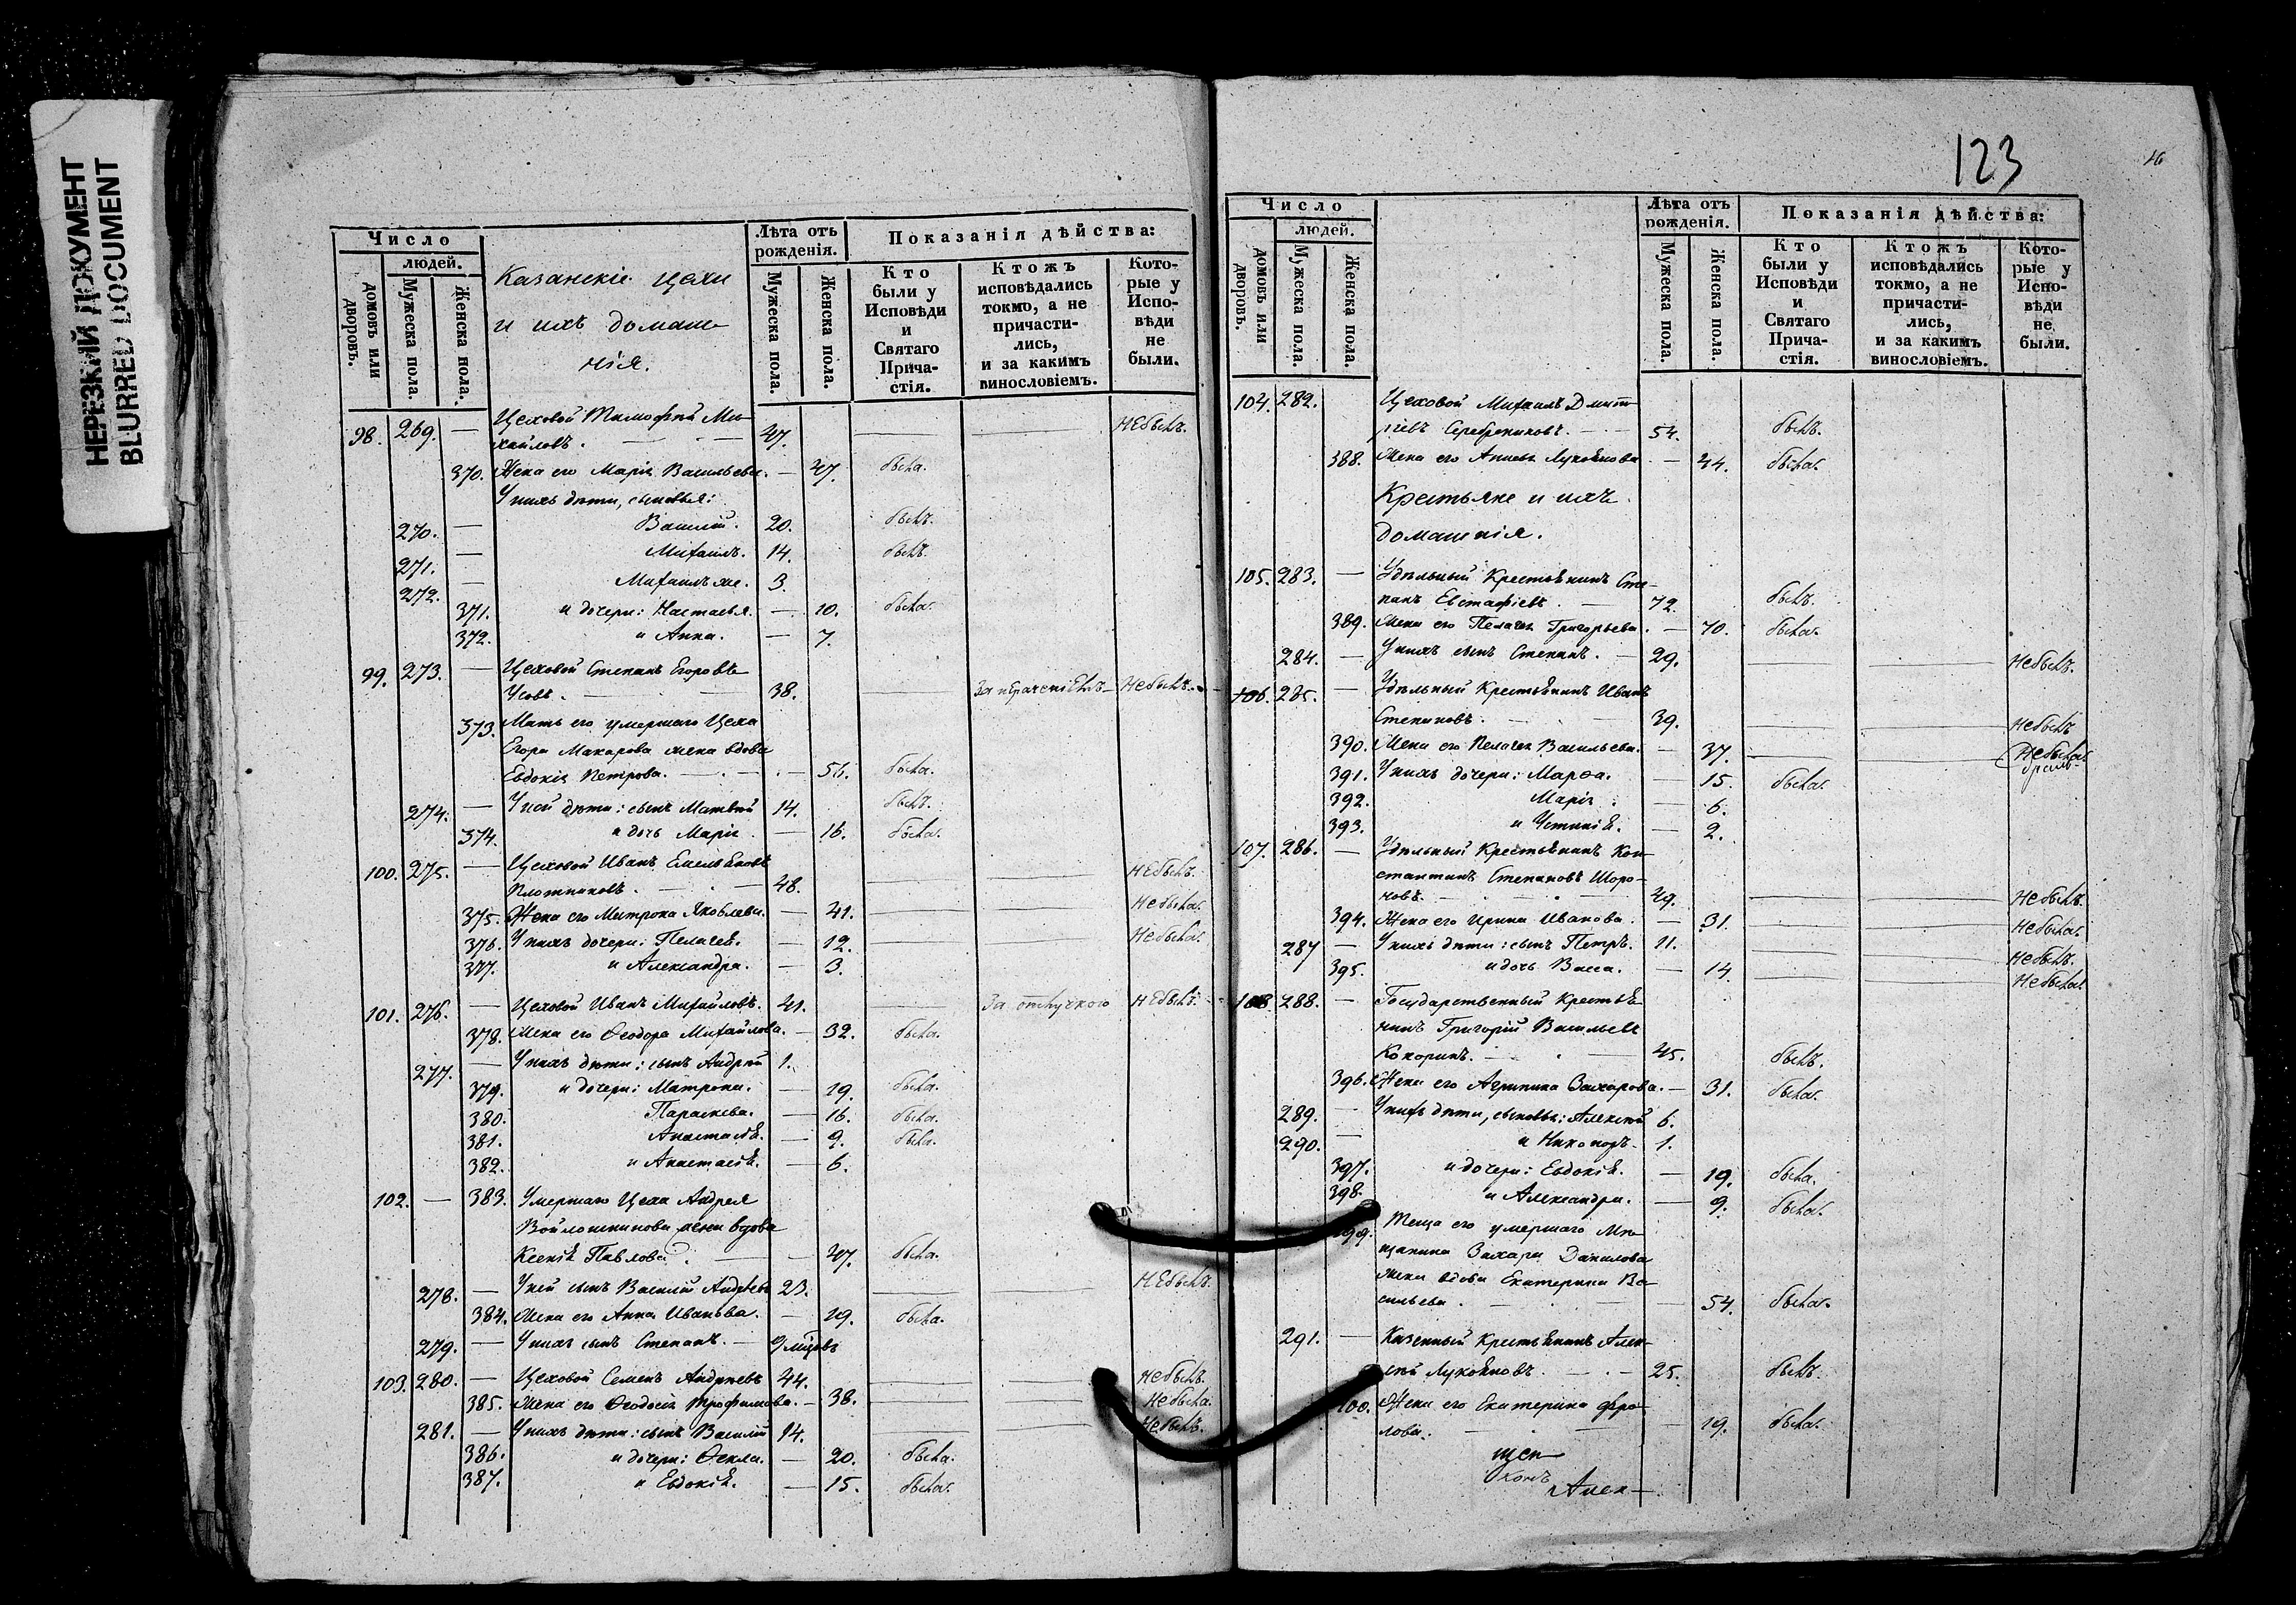 НЕРЕЗКИЙ ДОКУМЕНТ
BLURRED DOCUMENT
Число
людей.
домовъ или дворовъ.
Мужеска пола.
Женска пола.
Казанскіе цехи
и ихъ домаш-
нія.
Лѣта отъ
рожденія.
Мужеска пола.
Женска пола.
Показанія дѣйства:
Кто
были у
Исповѣди
и
Святаго
Прича-
стія.
Ктожъ
исповѣдались
токмо, а не
причасти-
лись,
и за какимъ
винословіемъ.
Кото-
рые у
Испо-
вѣди
не
были.
98. 269. — Цеховой Тимофей Ми-
хайловъ. — — 47. — — Небылъ.
370. Жена его Марія Васильева. — 47. была.
У нихъ дѣти, сыновья:
270. — Василій. 20. былъ.
271. — Михаилъ. 14. былъ.
272. — Михаилъ же. 3.
371. и дочери: Настасья. — 10. была.
372. и Анна. — 7.
99. 273. — Цеховой Степанъ Егоровъ
38. Небылъ.
373. Мать его умершаго Цеха
Егора Макарова жена вдова
Евдокія Петрова. — 56. была.
274. — У ней дѣти: сынъ Матвей 14. былъ.
374. и дочь Марія. — 16. была.
100. 275. — Цеховой Иванъ Емельяновъ
Плотниковъ. — 48. — — Небылъ.
375. Жена его Матрона Яковлева. — 41. — — Небыла.
376. У нихъ дочери: Пелагея. — 12. Небыла.
377. и Александра. — 3.
101. 276. — Цеховой Иванъ Михайловъ. 41. — За отлучкою Небылъ.
378. Жена его Ѳеодора Михайлова. — 32. была.
277. — У нихъ дѣти: сынъ Андрей 1.
379. и дочери: Матрона. — 19. была.
380. Параскева. — 16. была.
381. Анастасія. — 9. была.
382. и Анастасія. — 6.
102. — 383. Умершаго Цеха Андрея
Войлошникова жена вдова
Ксенія Павлова. — 47. была.
278. — У ней сынъ Василій Андреевъ 23. — — Небылъ.
384. Жена его Анна Иванова. — 19. была.
279. — У нихъ сынъ Степанъ. — 9 мѣсцовъ
103. 280. — Цеховой Семенъ Андреевъ 44. — — Небылъ.
385. Жена его Ѳеодосія Трофимова. — 38. — — Небыла.
281. — У нихъ дѣти: сынъ Василій 14. — — Небылъ.
386. и дочери: Ѳекла. — 20. была.
387. и Евдокія. — 15. была.
123
Число
людей.
домовъ или дворовъ.
Мужеска пола.
Женска пола.
Лѣта отъ
рожденія.
Мужеска пола.
Женска пола.
Показанія дѣйства:
Кто
были у
Исповѣди
и
Святаго
Прича-
стія.
Ктожъ
исповѣдались
токмо, а не
причасти-
лись,
и за какимъ
винословіемъ.
Кото-
рые у
Испо-
вѣди
не
были.
104. 282. Цеховой Михаилъ Дмит-
ріевъ Серебрениковъ. — 54. былъ.
388. Жена его Лукоянова. — 44. была.
Крестьяне и ихъ
домашнія.
105. 283. — Удѣльный Крестьянинъ Сте-
панъ Евстафіевъ. — 72. былъ.
389. Жена его Пелагея Григорьева. — 70. была.
284. — У нихъ сынъ Степанъ. — 29. — — Небылъ.
106. 285. — Удѣльный Крестьянинъ Иванъ
Степановъ. — 39. — — Небылъ
390. Жена его Пелагея Васильева. — 37. — — Небыла
391. У нихъ дочери: Марѳа. — 15. была.
392. Марія. — 6.
393. и Устинія. — 2.
107. 286. — Удѣльный Крестьянинъ Кон-
стантинъ Степановъ Шоро-
ховъ. — 49. — — Небылъ.
394. Жена его Ирина Иванова. — 31. — — Небыла.
287 — У нихъ дѣти: сынъ Петръ. 11. — — Небылъ.
395. и дочь Васса. — 14 — — Небыла.
108 288. — Государственный Крестья-
нинъ Григорій Васильевъ
Кокоринъ. — 45. былъ.
396. Жена его Агрипина Захарова. — 31. была.
289. — У нихъ дѣти, сыновья: Алексей 6.
290. — и Никаноръ. 1.
397. и дочери: Евдокія. — 19. была.
398. и Александра. — 9. была.
399. Теща его умершаго Мѣ-
щанина Захара Данилова
жена вдова Екатерина Ва-
сильева. — 54. была.
291. — Казенный Крестьянинъ Алек-
сѣй Лукояновъ. — 25. былъ.
400. Жена его Екатерина Фро-
лова. — 19. была.
Алек-